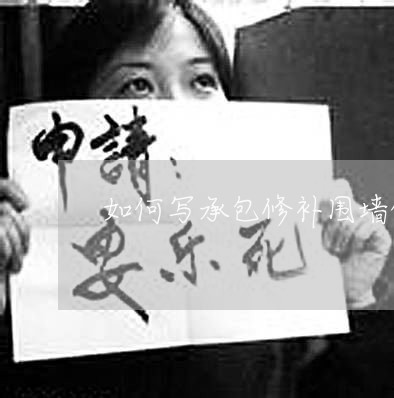 申請：
如何写承包修补围墙
要乐死